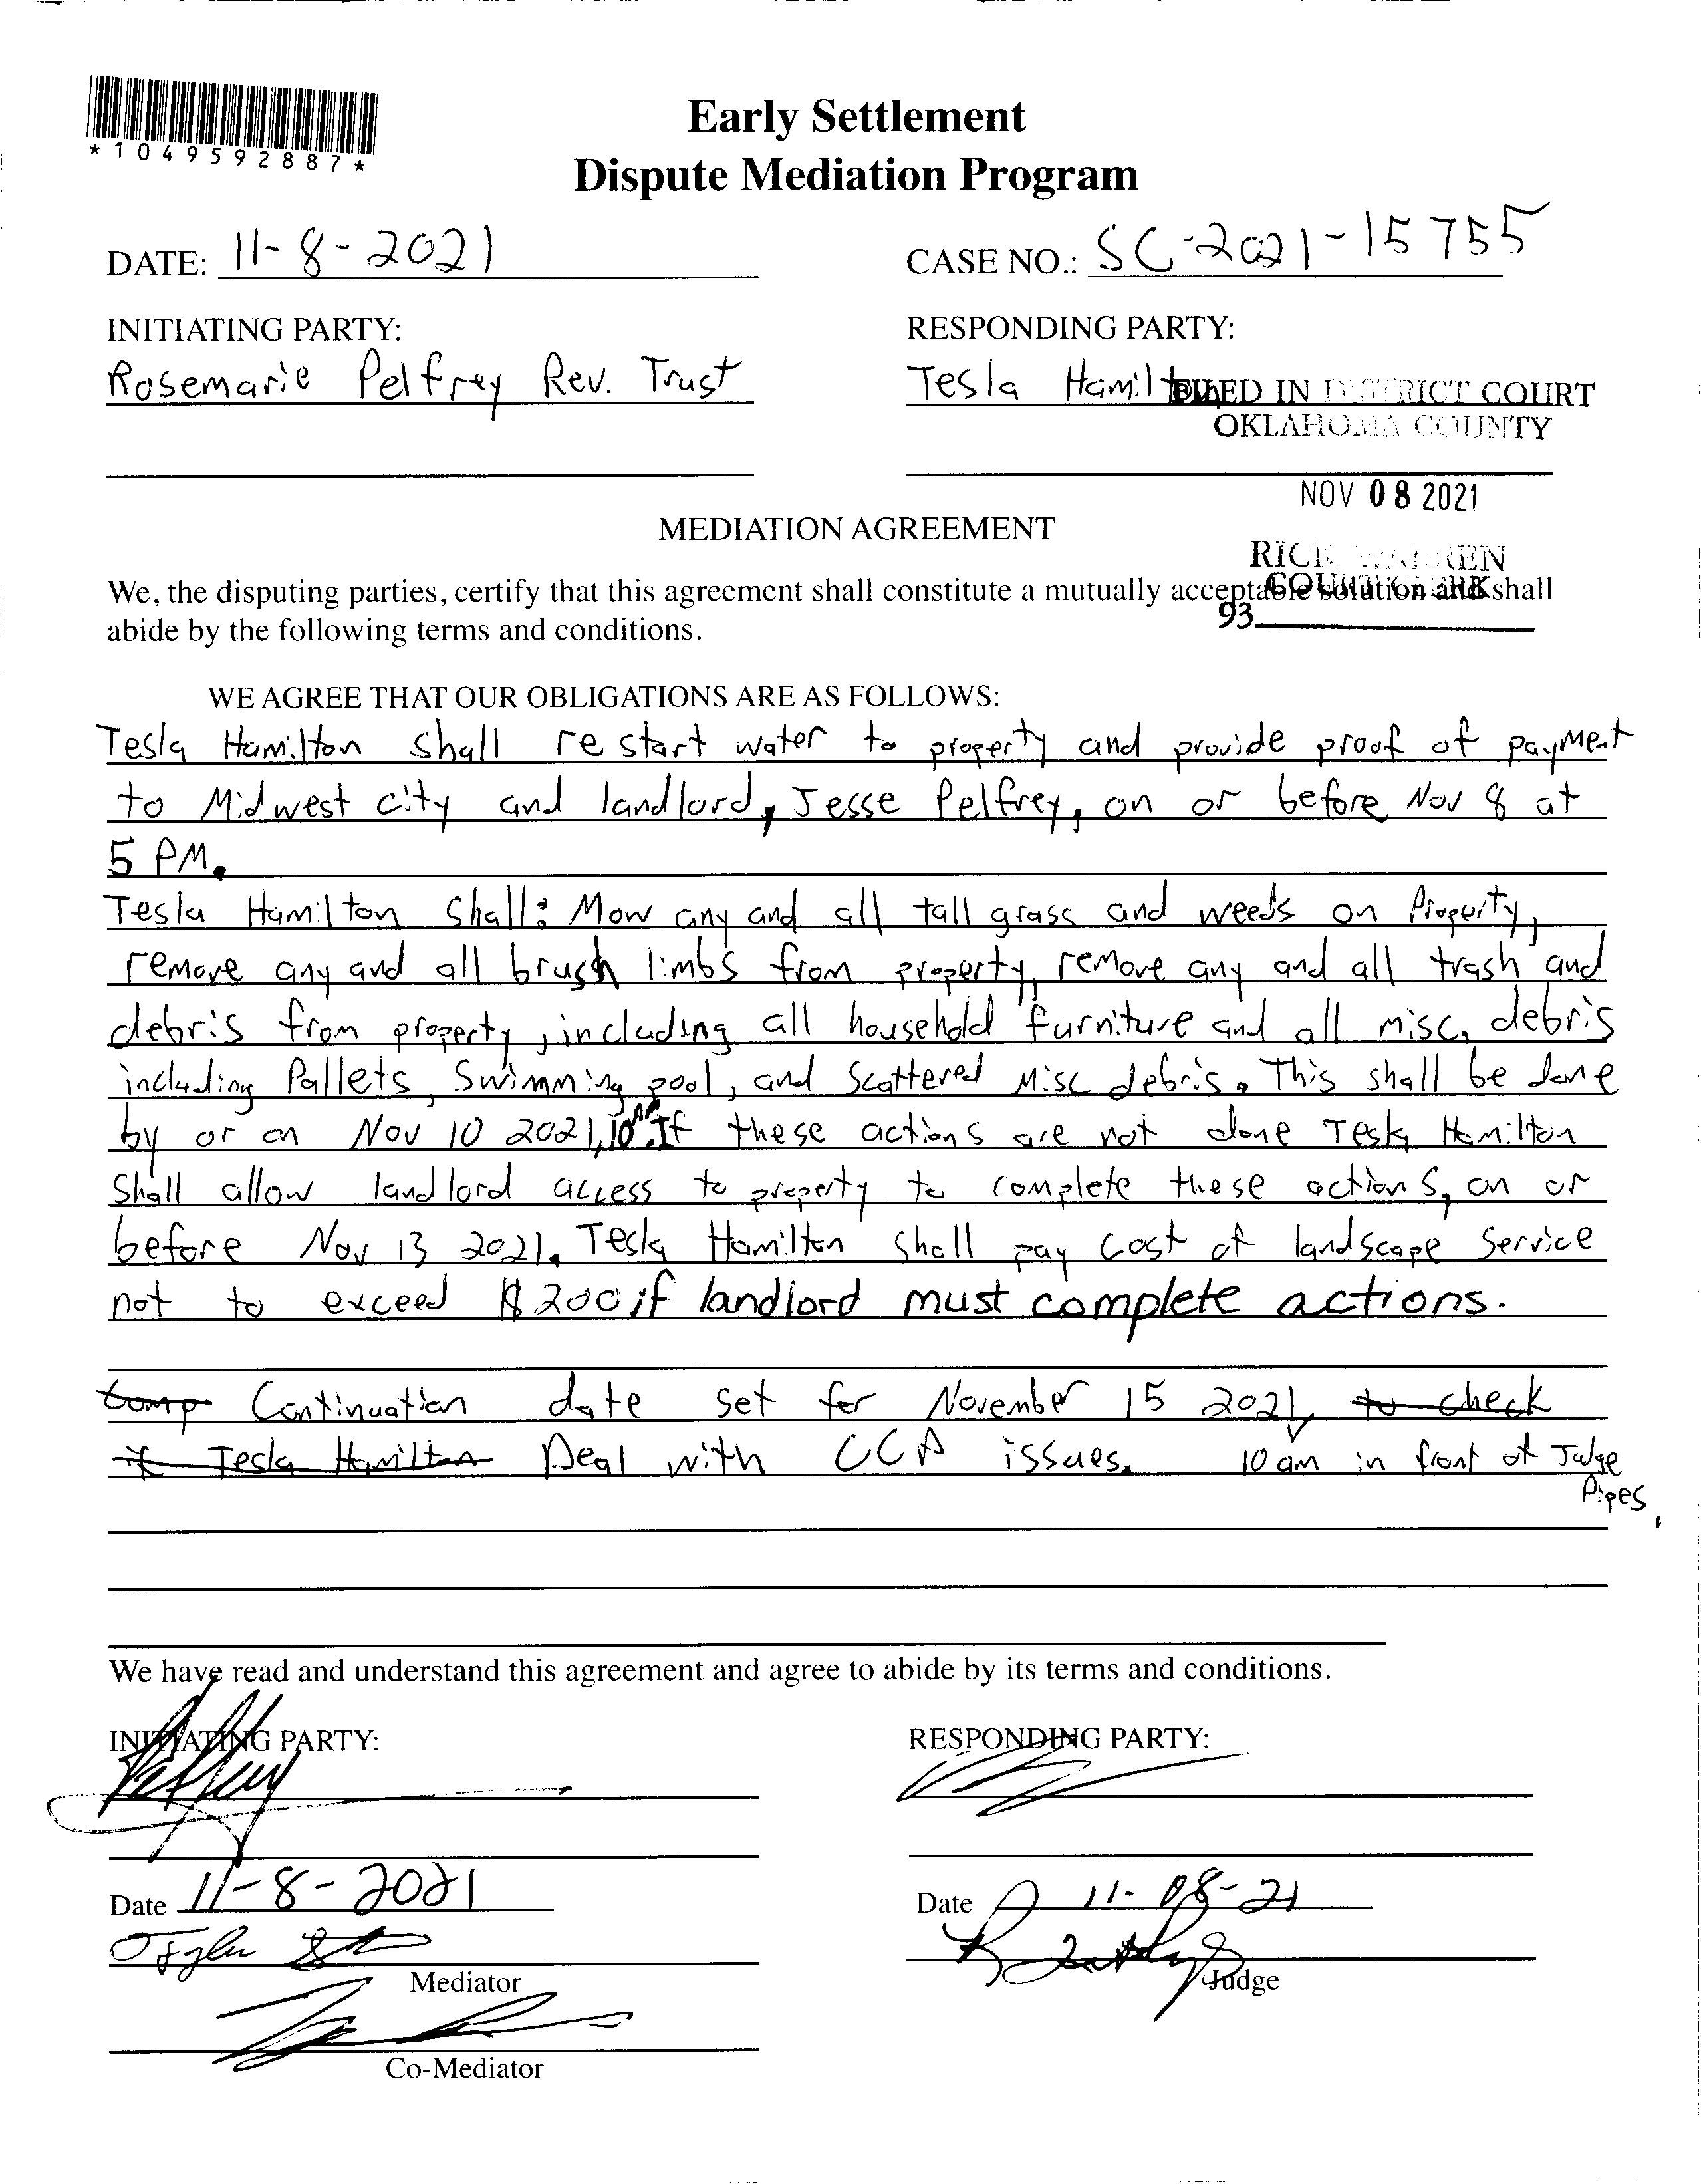 *1049592887*
Early Settlement
Dispute Mediation Program
DATE: 11-8-2021
CASE NO.: SC-2021-15755
INITIATING PARTY:
RESPONDING PARTY:
Rosemarie Pelfrey Rev. Trust
Tesla Hamilton
FILED IN DISTRICT COURT
OKLAHOMA COUNTY
NOV 08 2021
MEDIATION AGREEMENT
RICK WARREN
COURT CLERK
93
We, the disputing parties, certify that this agreement shall constitute a mutually acceptable solution and shall
abide by the following terms and conditions.
WE AGREE THAT OUR OBLIGATIONS ARE AS FOLLOWS:
Tesla Hamilton shall restart water to property and provide proof of payment
to Midwest city and landlord, Jesse Pelfrey, on or before Nov 8 at
5 PM.
Tesla Hamilton Shall: Mow any and all tall grass and weeds on Property,
remove any and all brush limbs from property, remove any and all trash and
debris from property, including all household furniture and all misc. debris
including Pallets, Swimming pool, and Scattered Misc debris. This shall be done
by or on Nov 10 2021, 10 AM. If these actions are not done Tesla Hamilton
Shall allow landlord access to property to complete these actions, on or
before Nov 13 2021. Tesla Hamilton shall pay cost of landscape service
not to exceed $200 if landlord must complete actions.
Comp Continuation date set for November 15 2021, to check
if Tesla Hamilton Deal with CCA issues. 10 am in front of Judge
Pipes.
We have read and understand this agreement and agree to abide by its terms and conditions.
INITIATING PARTY:
RESPONDING PARTY:
Pelfrey
Date 11-8-2021
Date 11-08-21
Mediator
Judge
Co-Mediator